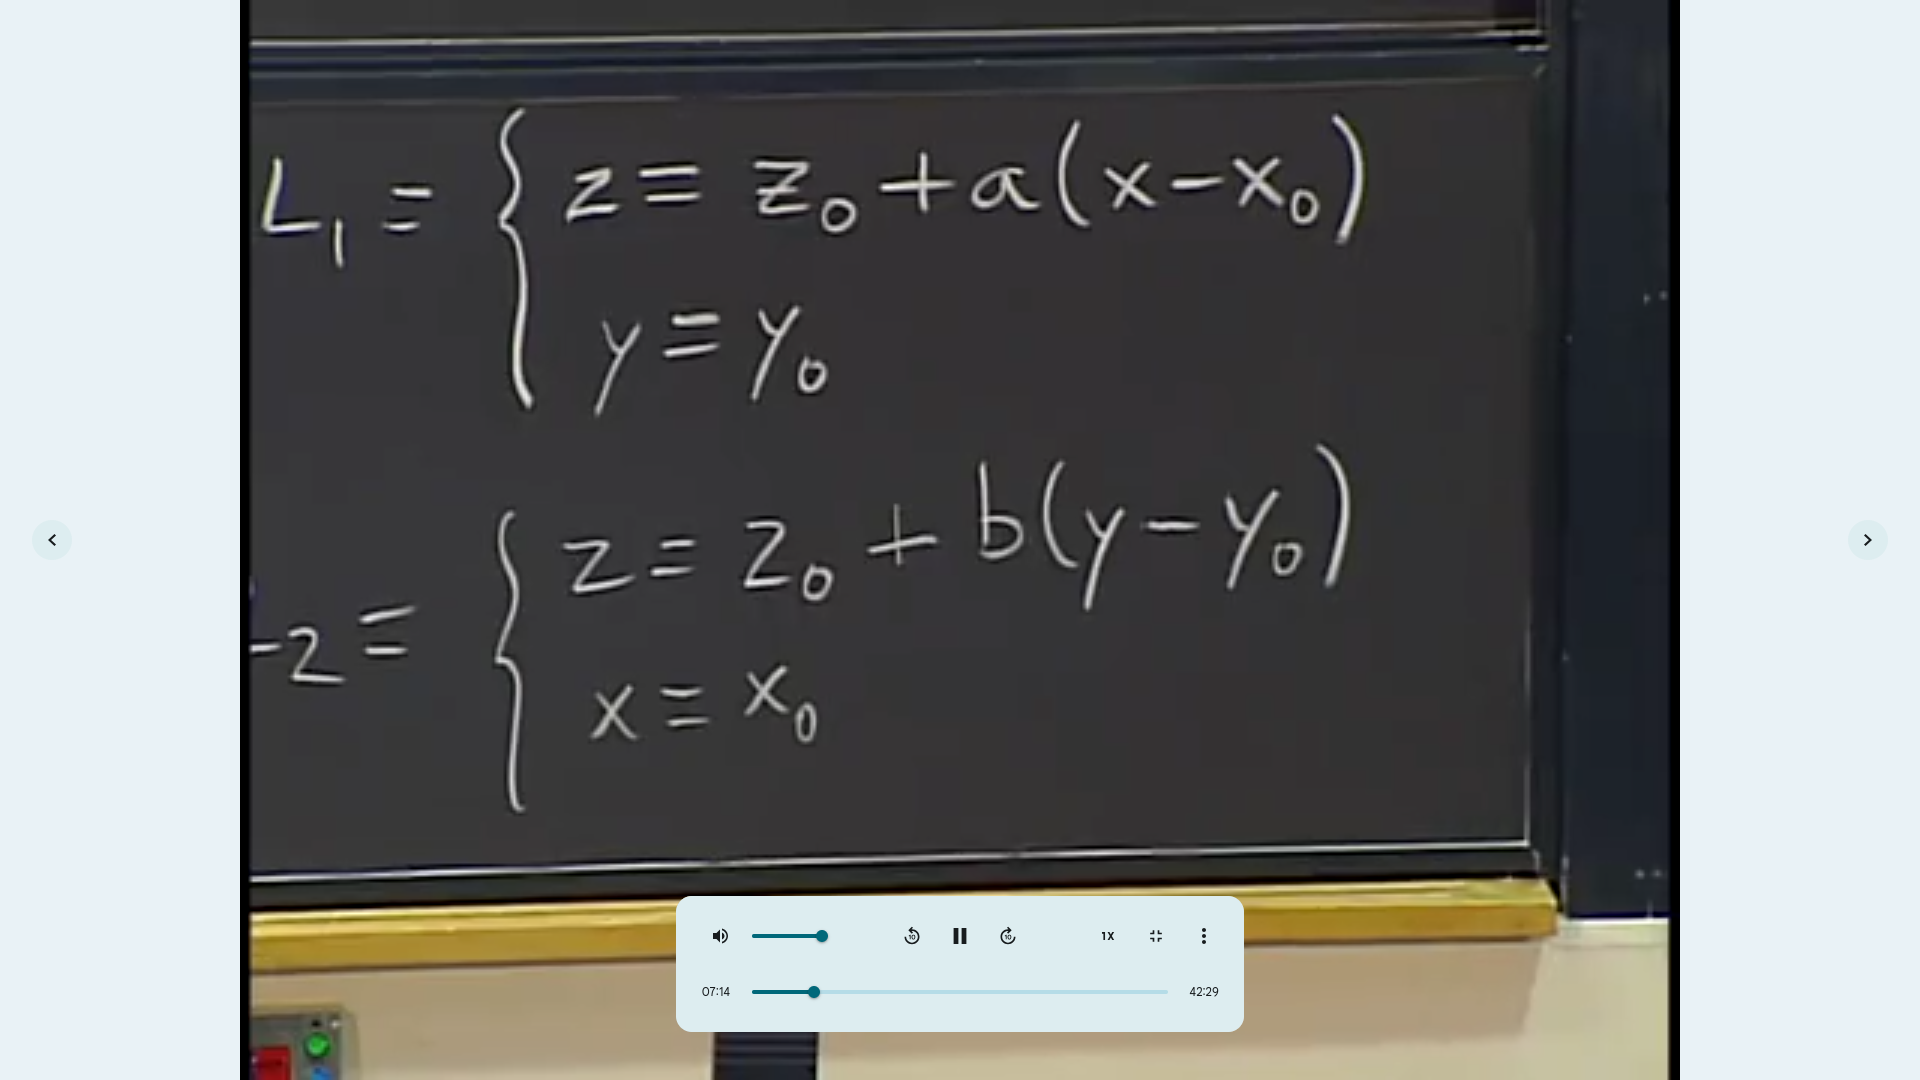 L₁ = { z = z₀ + a(x - x₀)
y = y₀
₂ = { z = z₀ + b(y - y₀)
x = x₀
10
10
1X
07:14
42:29